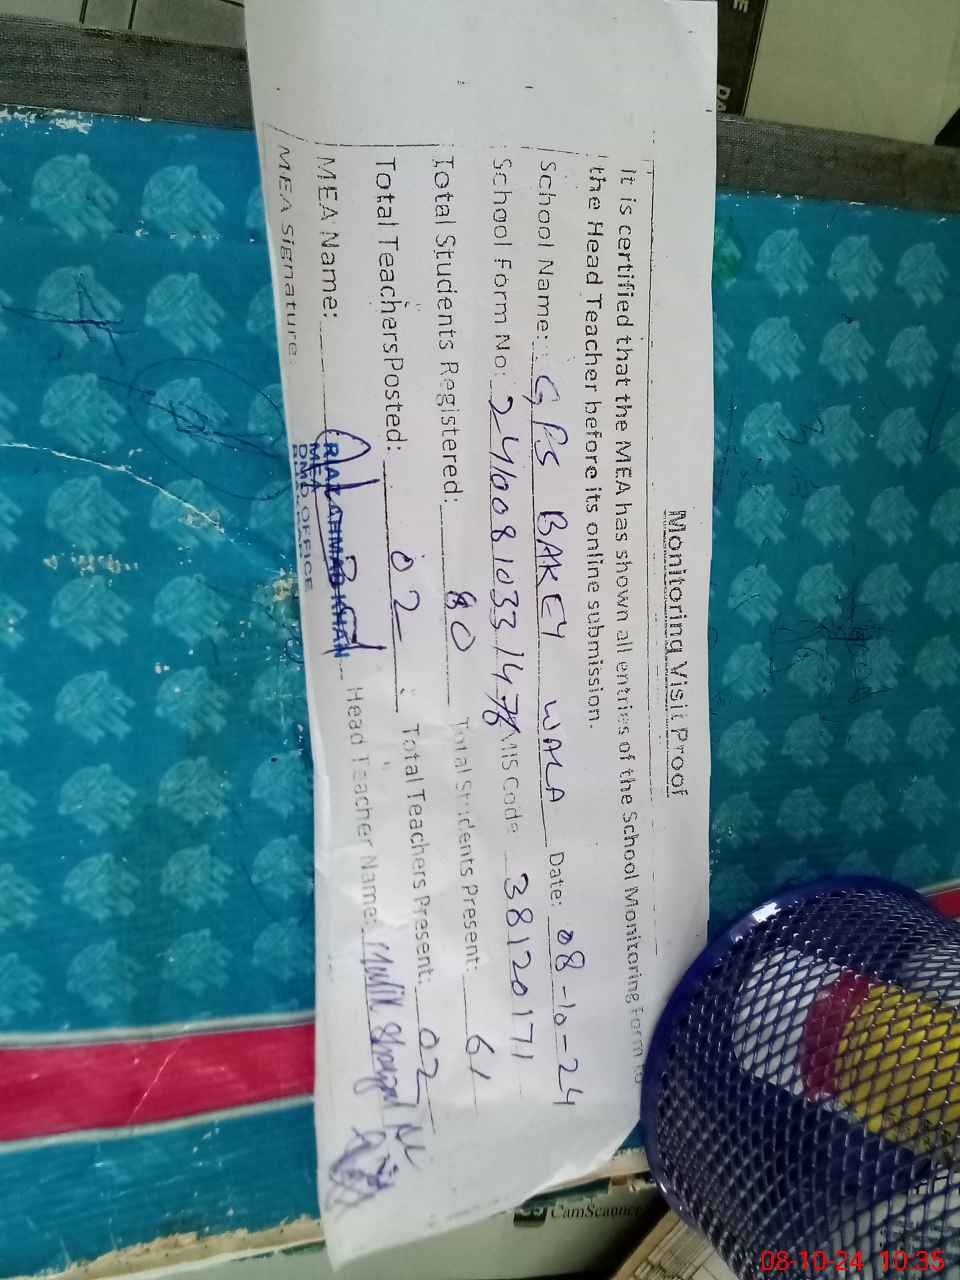 Monitoring Visit Proof
It is certified that the MEA has shown all entries of the School Monitoring Form to
the Head Teacher before its online submission.
School Name: GPS BAKEY WALA Date: 08-10-24
School Form No: MIS Code 38120171
Total Students Registered: 80 Total Students Present: 61
Total Teachers Posted: 02 Total Teachers Present: 02
MEA Name: RIAZ AHMAD KHAN Head Teacher Name: Malik
MEA
MEA Signature: DMO OFFICE
CamScanner
08-10-24 10:35